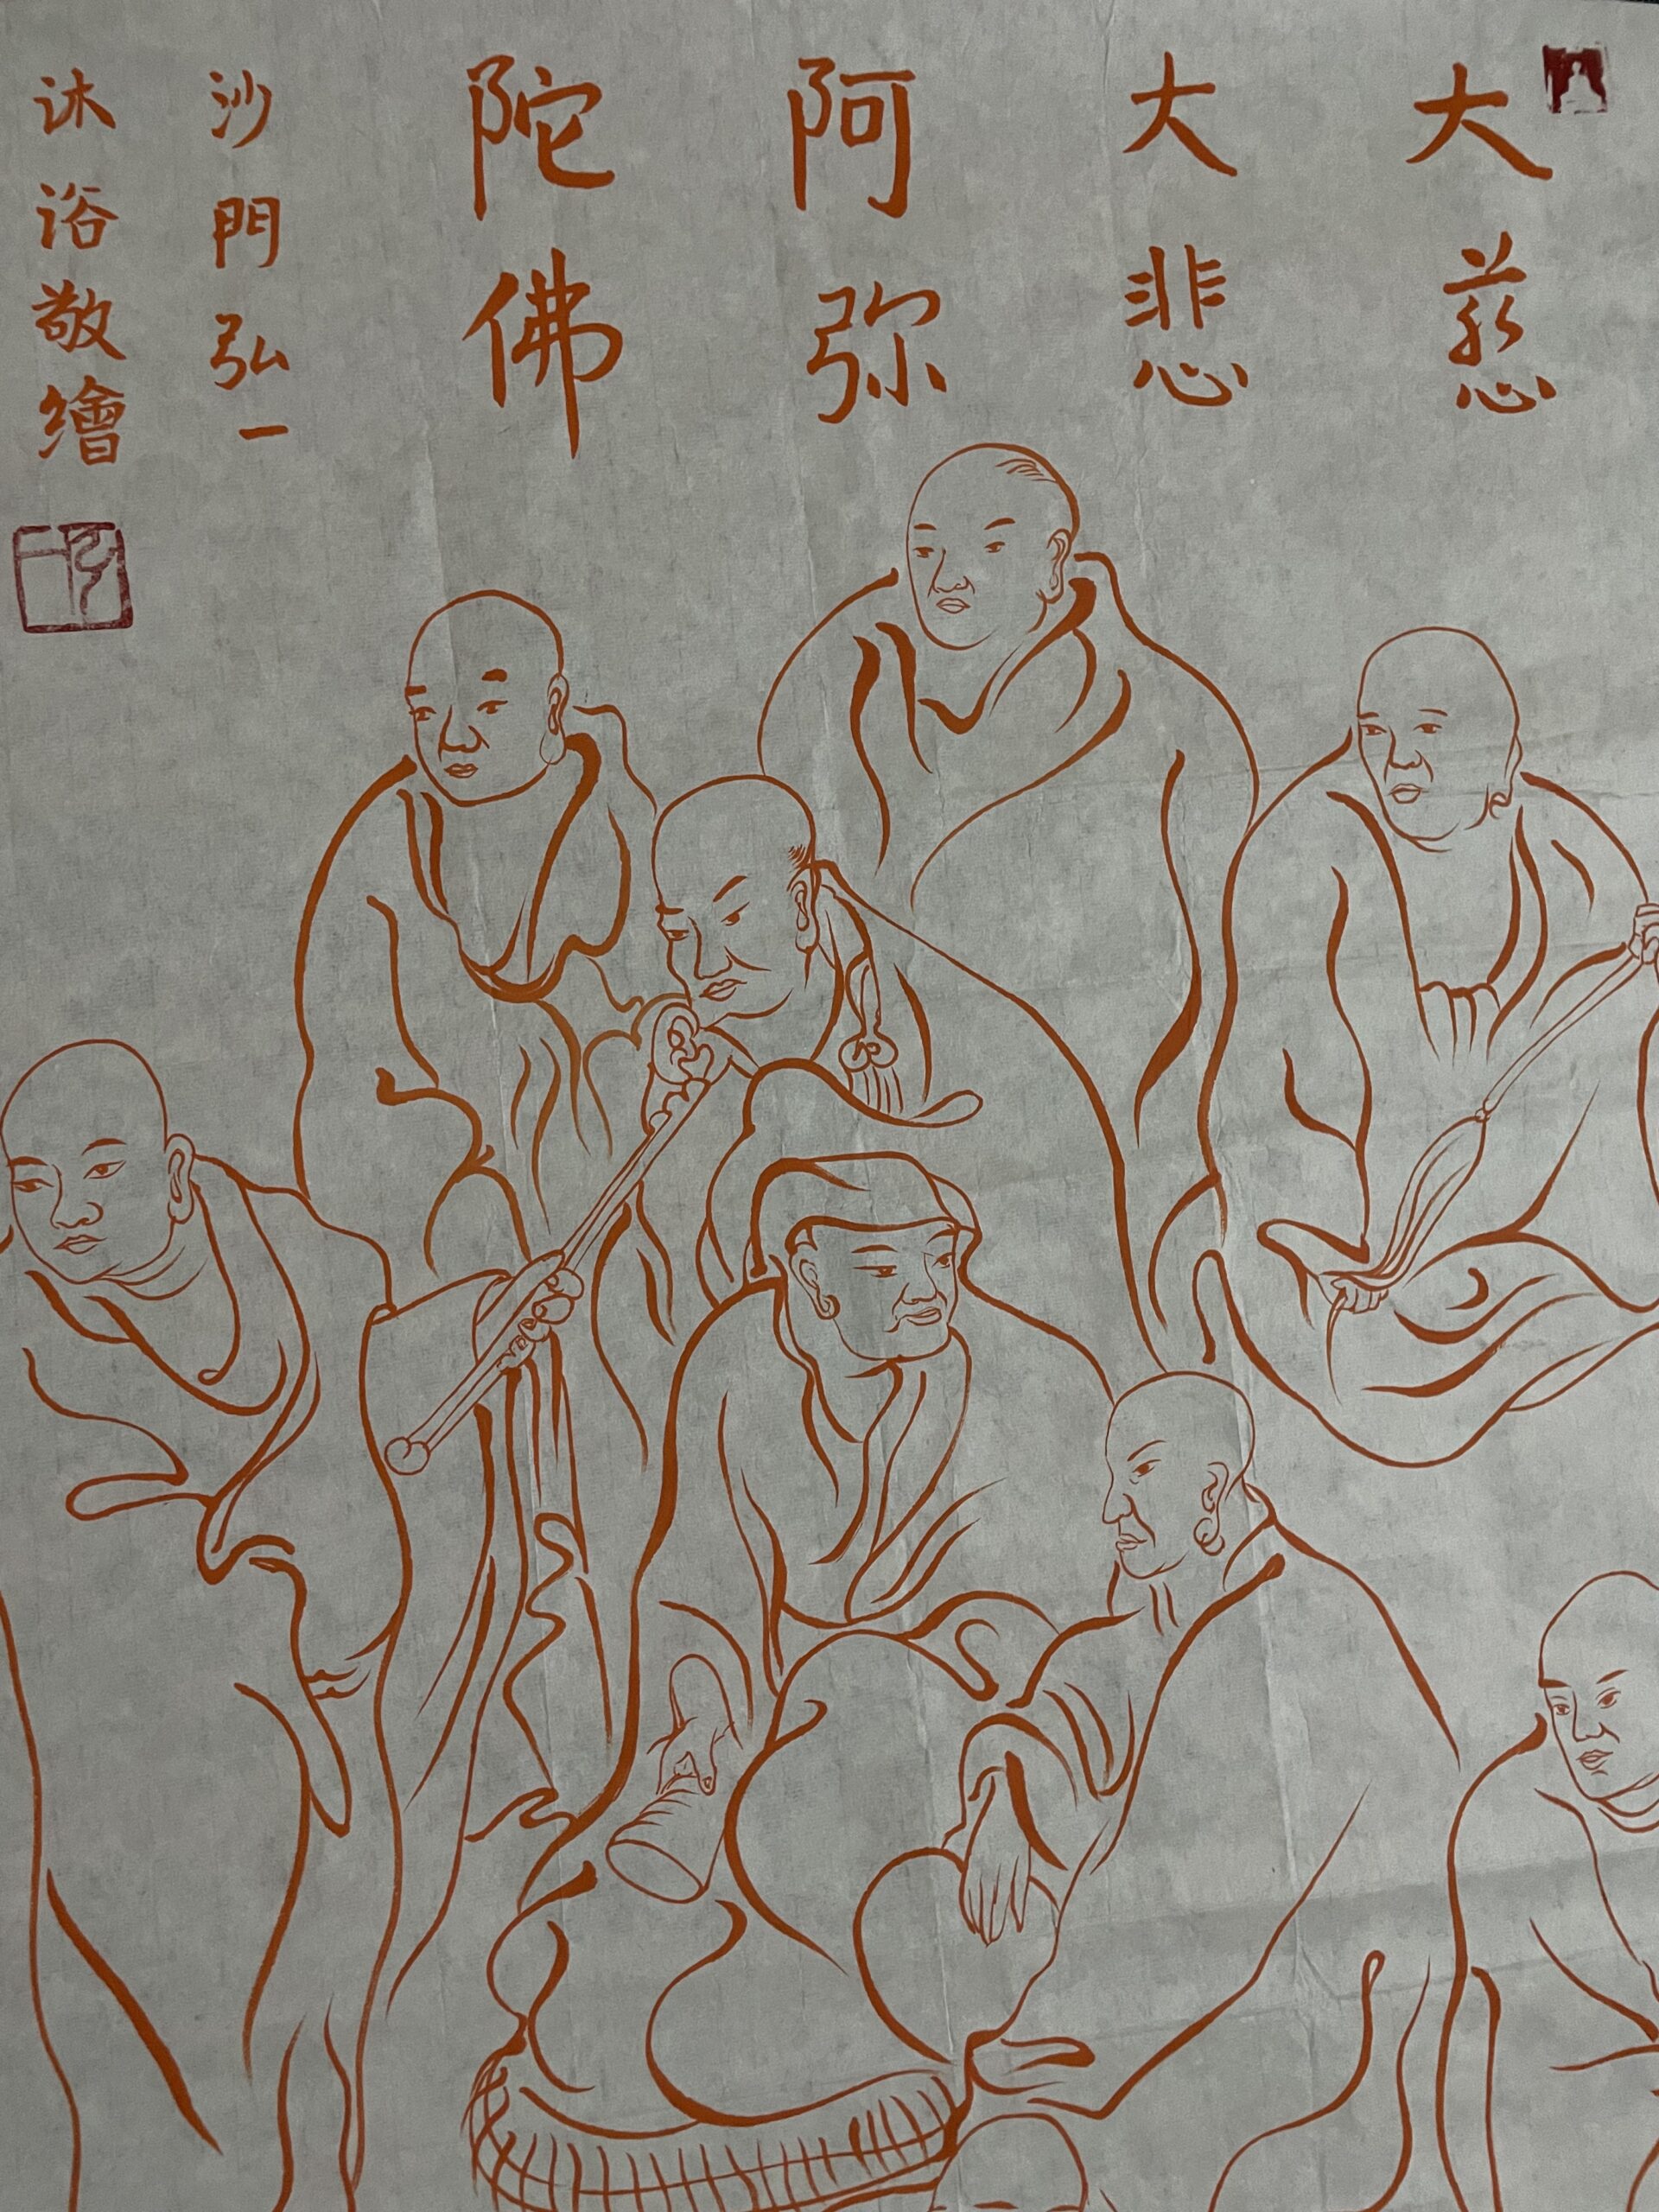 大慈
大悲
阿弥
陀佛
沙門弘一
沐浴敬繪
弘一